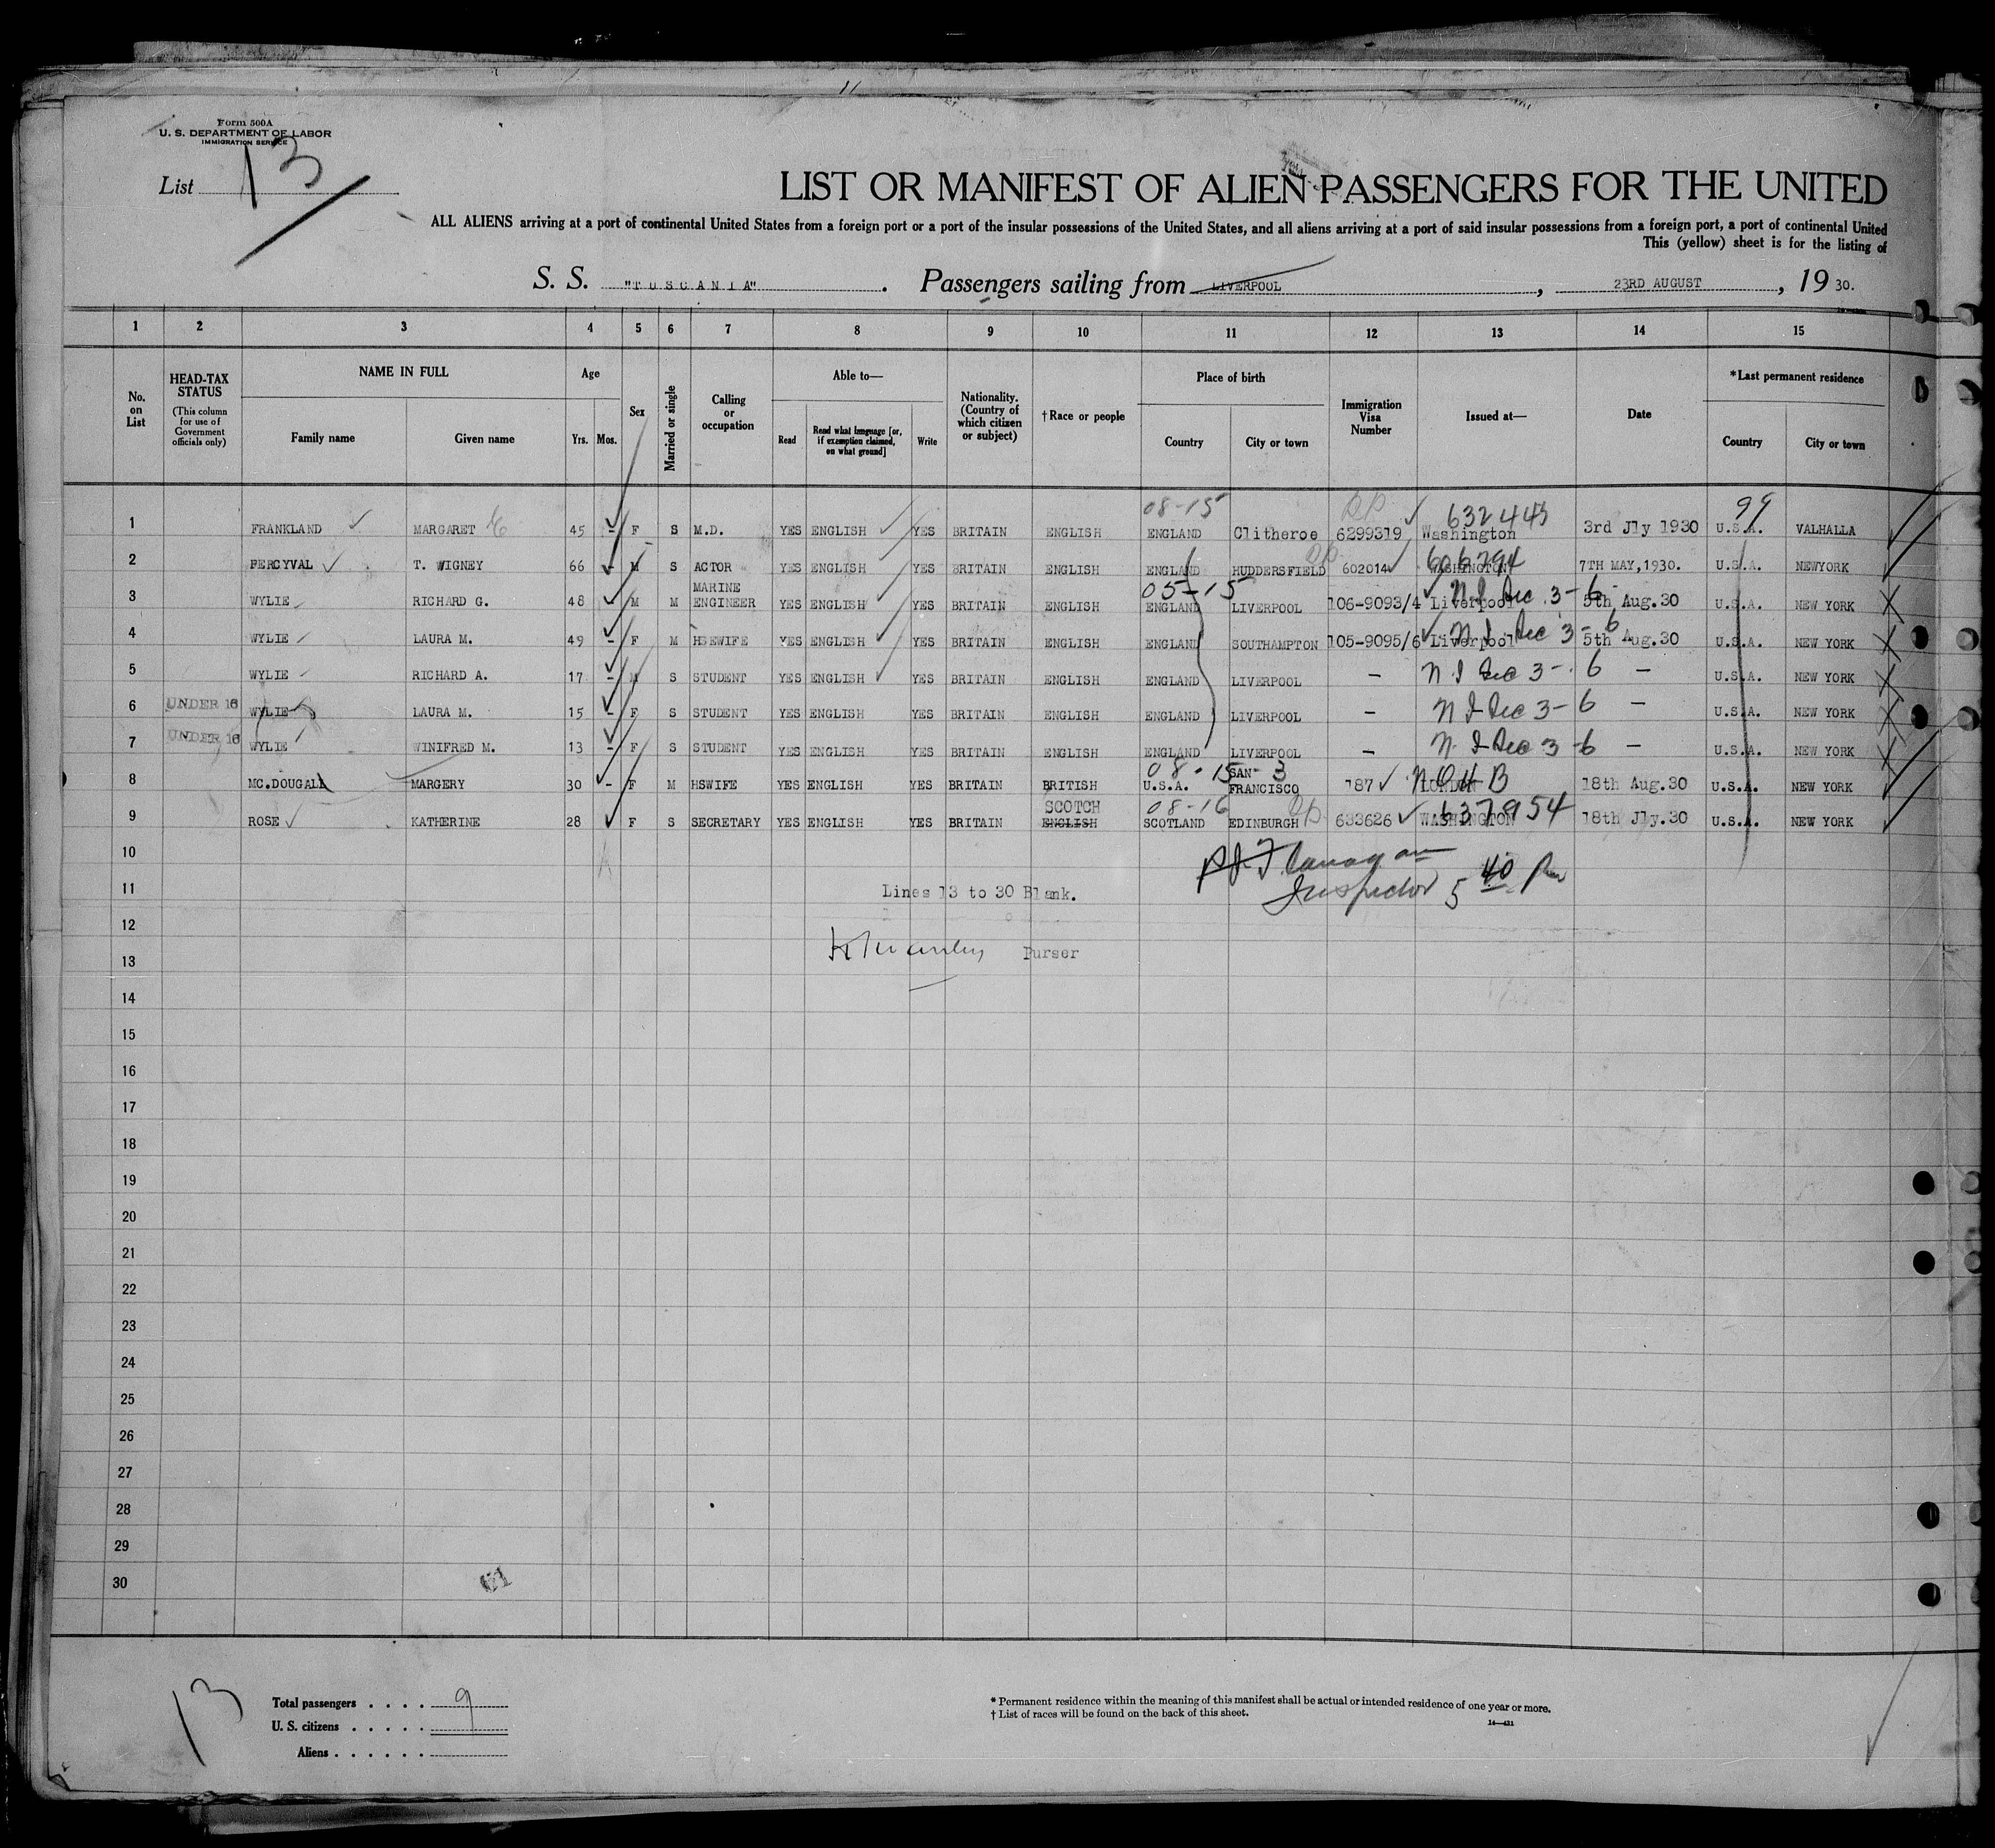 Form 500A
U. S. DEPARTMENT OF LABOR
IMMIGRATION SERVICE
List 13
LIST OR MANIFEST OF ALIEN PASSENGERS FOR THE UNITED
ALL ALIENS arriving at a port of continental United States from a foreign port or a port of the insular possessions of the United States, and all aliens arriving at a port of said insular possessions from a foreign port, a port of continental United
This (yellow) sheet is for the listing of
S. S. "TUSCANIA". Passengers sailing from LIVERPOOL, 23RD AUGUST, 19 30.
1 2 3 4 5 6 7 8 9 10 11 12 13 14 15
No. on List
HEAD-TAX STATUS (This column for use of Government officials only)
NAME IN FULL
Family name Given name
Age
Yrs. Mos.
Sex
Married or single
Calling or occupation
Able to—
Read Read what language [or, if exemption claimed, on what ground] Write
Nationality. (Country of which citizen or subject)
†Race or people
Place of birth
Country City or town
Immigration Visa Number
Issued at—
Date
*Last permanent residence
Country City or town
08-15 632443 99
1 FRANKLAND MARGARET 45 - F S M.D. YES ENGLISH YES BRITAIN ENGLISH ENGLAND Clitheroe 6299319 Washington 3rd Jly 1930 U.S.A. VALHALLA
606794
2 PERCYVAL T. WIGNEY 66 - M S ACTOR YES ENGLISH YES BRITAIN ENGLISH ENGLAND HUDDERSFIELD 602014 WASHINGTON 7TH MAY,1930. U.S.A. NEWYORK
05-15 N I Sec 3-6
3 WYLIE RICHARD G. 48 - M M MARINE ENGINEER YES ENGLISH YES BRITAIN ENGLISH ENGLAND LIVERPOOL 106-9093/4 Liverpool 5th Aug.30 U.S.A. NEW YORK
N I Sec 3-6
4 WYLIE LAURA M. 49 - F M HSEWIFE YES ENGLISH YES BRITAIN ENGLISH ENGLAND SOUTHAMPTON 105-9095/6 Liverpool 5th Aug.30 U.S.A. NEW YORK
5 WYLIE RICHARD A. 17 - M S STUDENT YES ENGLISH YES BRITAIN ENGLISH ENGLAND LIVERPOOL — N I Sec 3-6 — U.S.A. NEW YORK
6 UNDER 16 WYLIE LAURA M. 15 - F S STUDENT YES ENGLISH YES BRITAIN ENGLISH ENGLAND LIVERPOOL — N I Sec 3-6 — U.S.A. NEW YORK
7 UNDER 16 WYLIE WINIFRED M. 13 - F S STUDENT YES ENGLISH YES BRITAIN ENGLISH ENGLAND LIVERPOOL — N I Sec 3-6 — U.S.A. NEW YORK
08-15 3
8 MC.DOUGALL MARGERY 30 - F M HSWIFE YES ENGLISH YES BRITAIN BRITISH U.S.A. SAN FRANCISCO 787 LONDON 18th Aug.30 U.S.A. NEW YORK
SCOTCH 08-16 637954
9 ROSE KATHERINE 28 F S SECRETARY YES ENGLISH YES BRITAIN ENGLISH SCOTLAND EDINBURGH 633626 WASHINGTON 18th Jly.30 U.S.A. NEW YORK
10
Inspector 5 40 Pm
11 Lines 13 to 30 Blank.
12
Purser
13
14
15
16
17
18
19
20
21
22
23
24
25
26
27
28
29
30
13
Total passengers . . . . 9
U. S. citizens . . . . .
Aliens . . . . . .
* Permanent residence within the meaning of this manifest shall be actual or intended residence of one year or more.
† List of races will be found on the back of this sheet.
14—421